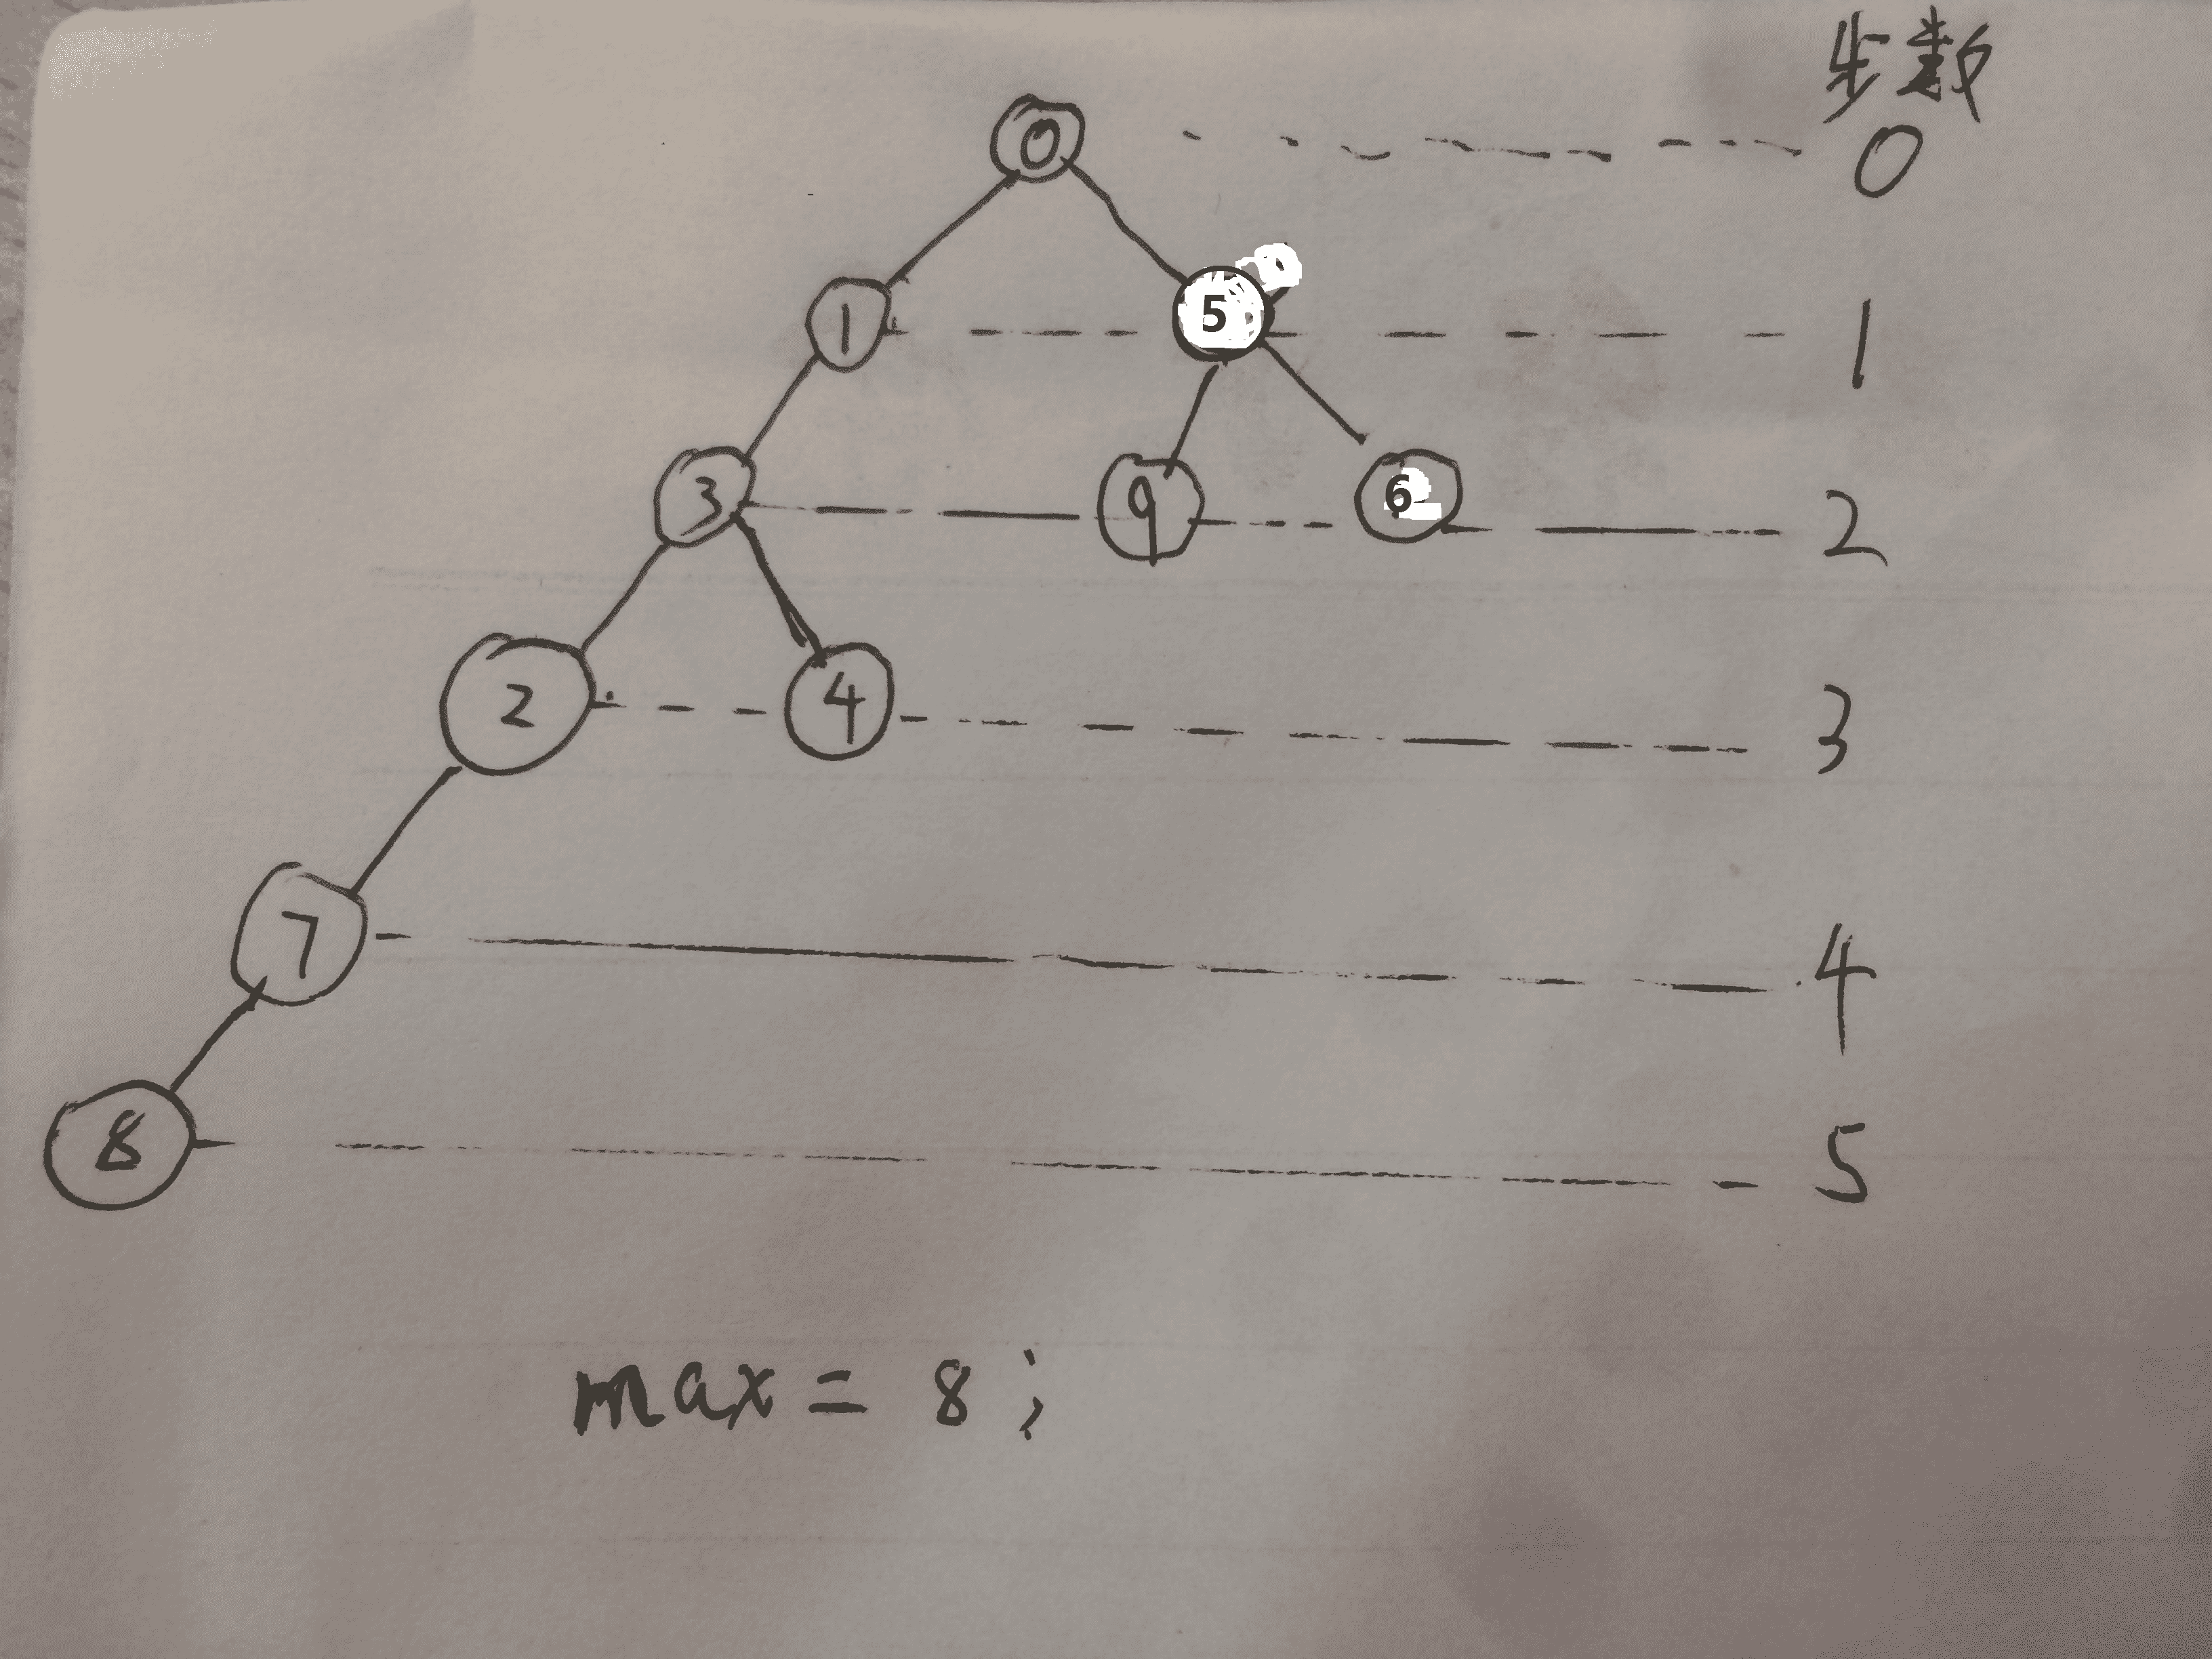 步数
0 0
1 5 1
3 9 6 2
2 4 3
7 4
8 5
max = 8;